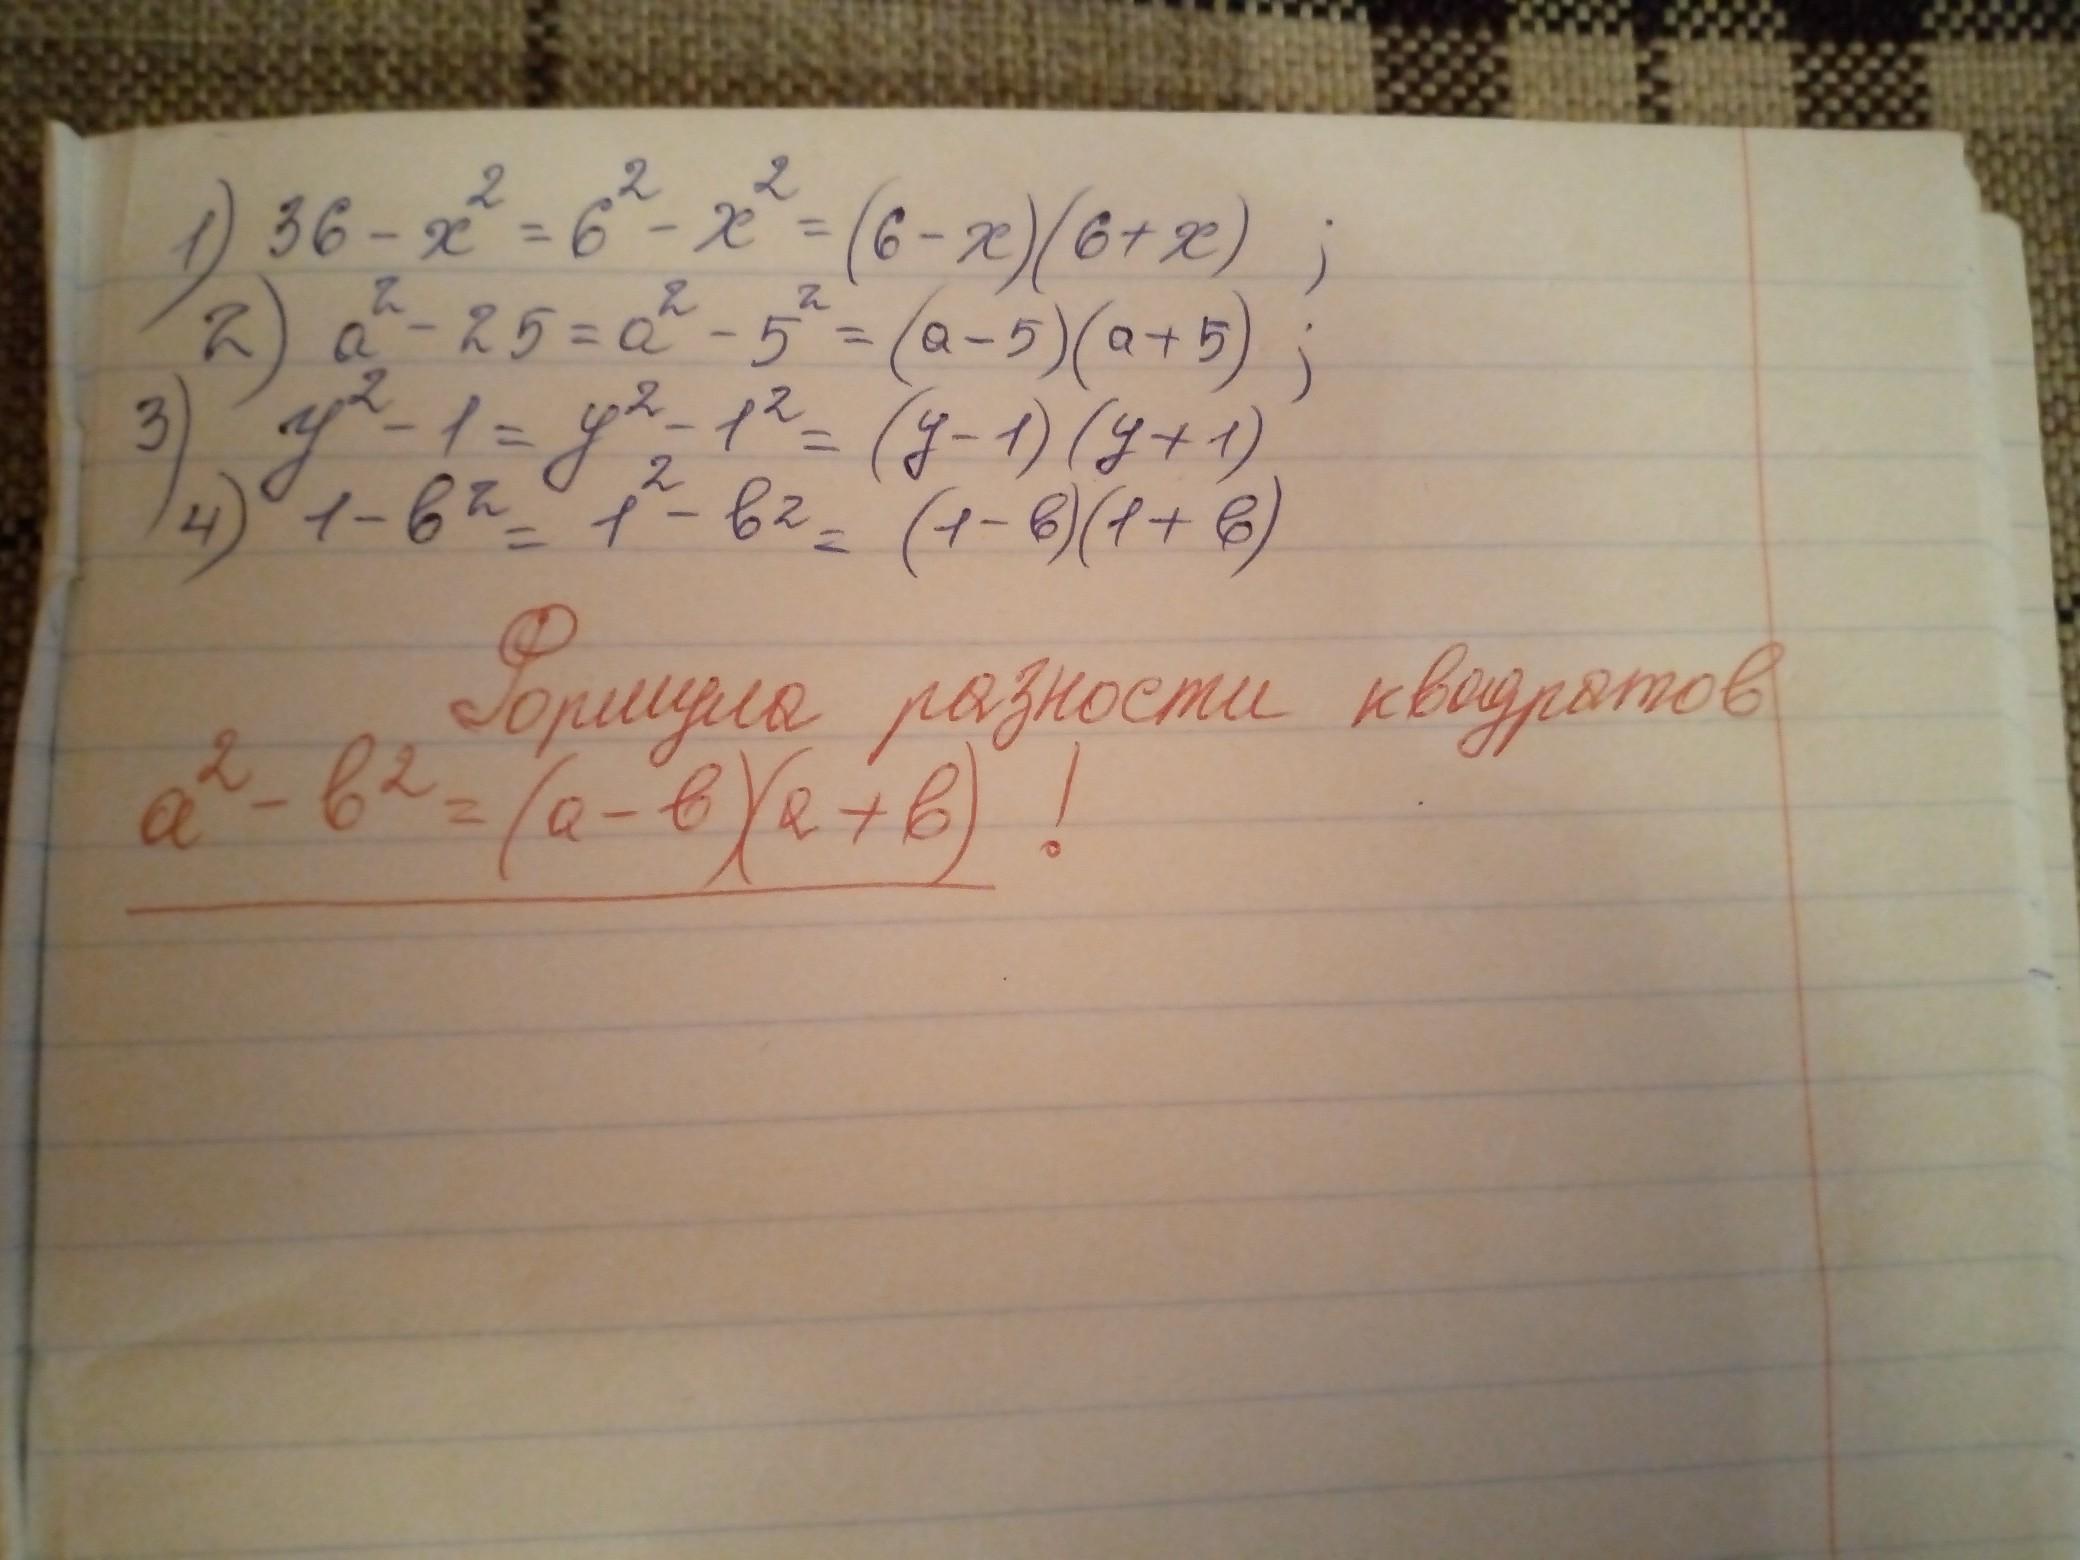 1) 36 - x² = 6² - x² = (6 - x)(6 + x) ;
2) a² - 25 = a² - 5² = (a - 5)(a + 5) ;
3) y² - 1 = y² - 1² = (y - 1) (y + 1)
4) 1 - b² = 1² - b² = (1 - b)(1 + b)
Формула разности квадратов
a² - b² = (a - b)(a + b) !